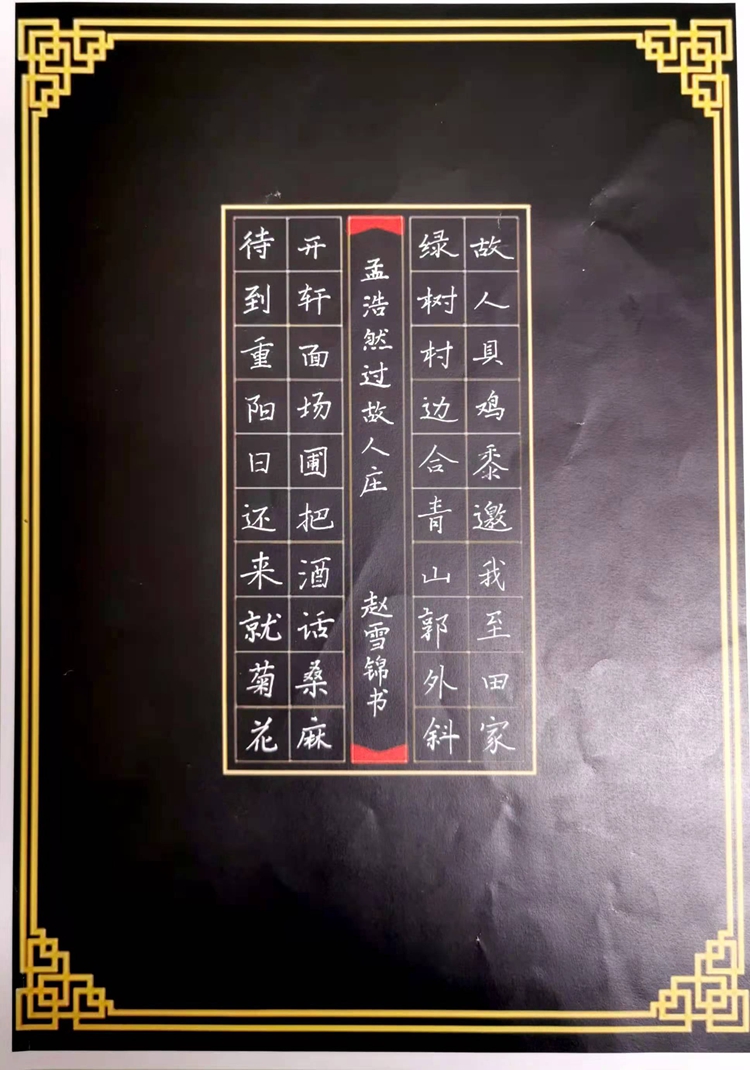 故人具鸡黍邀我至田家
绿树村边合青山郭外斜
孟浩然过故人庄 赵雪锦书
开轩面场圃把酒话桑麻
待到重阳日还来就菊花